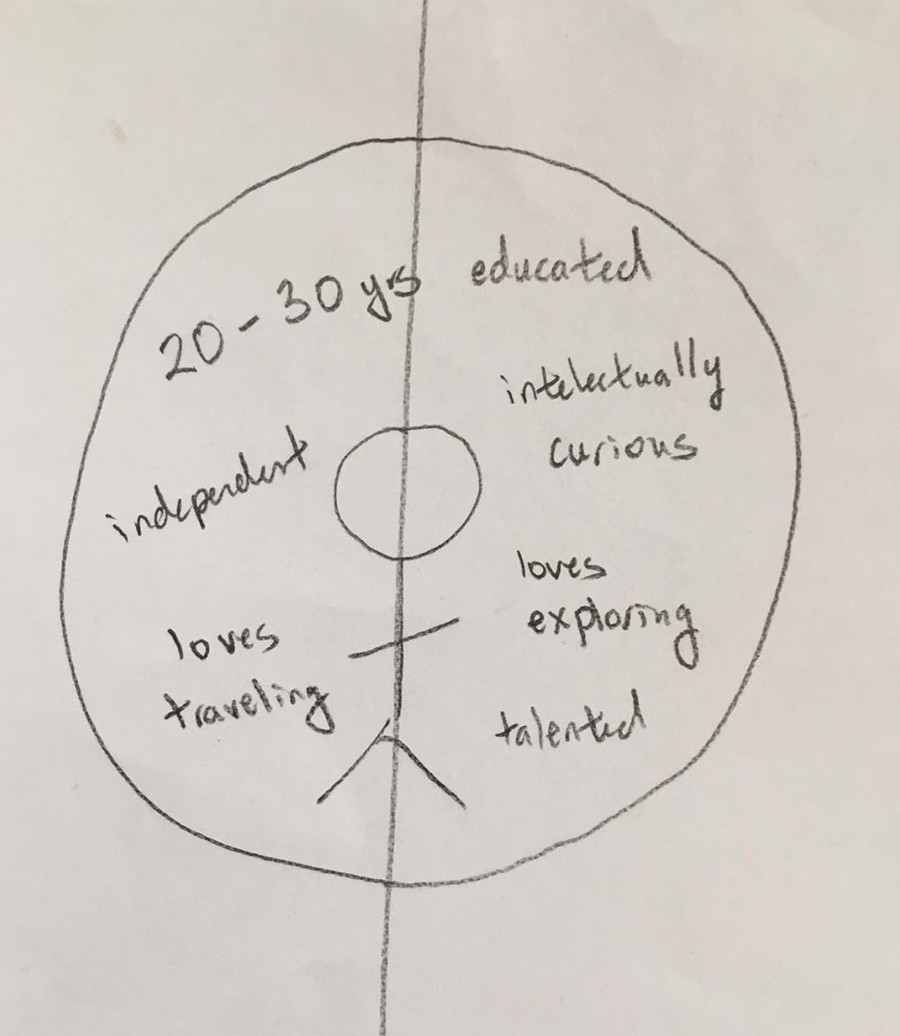 20-30 ys
independent
loves
traveling
educated
intelectually
curious
loves
exploring
talented